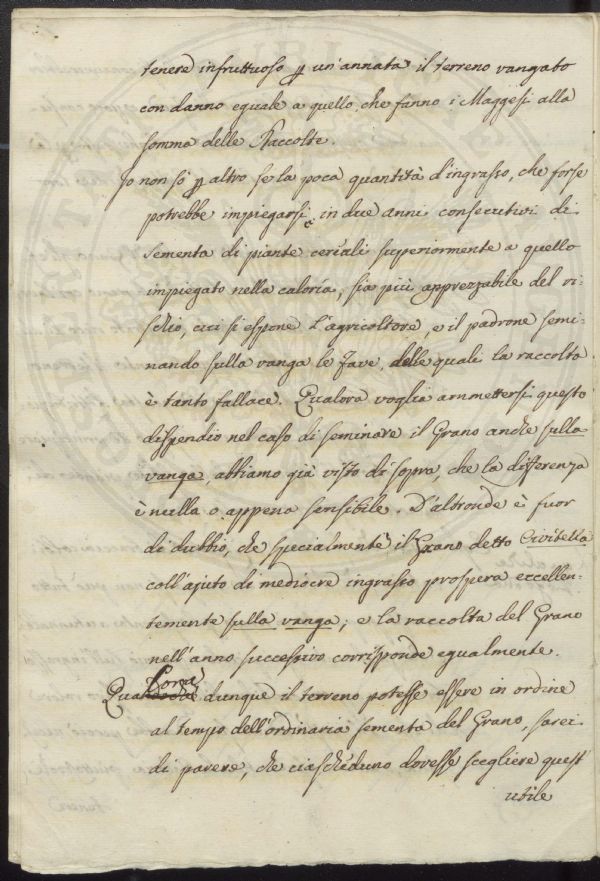 tenere infruttuoso p un'annata il terreno vangato
con danno eguale a quello, che fanno i Maggesi alla
somma delle Raccolte.
Io non sò p altro se la poca quantità d'ingrasso, che forse
potrebbe impiegarsi in due anni consecutivi di
sementa di piante cereali superiormente a quello
impiegato nella caloria, sia più apprezzabile del ri-
schio, cui si espone l'agricoltore, e il padrone semi-
nando sulla vanga le fave, delle quali la raccolta
è tanto fallace. Qualora voglia ammettersi questo
dispendio nel caso di seminare il Grano anche sulla
vanga, abbiamo già visto di sopra, che la differenza
è nulla o appena sensibile. D'altronde è fuor
di dubbio, che specialmente il Grano detto Civitella
coll'ajuto di mediocre ingrasso prospera eccellen-
temente sulla vanga; e la raccolta del Grano
nell'anno successivo corrisponde egualmente.
Qualora dunque il terreno potesse essere in ordine
al tempo dell'ordinaria sementa del Grano, sarei
di parere, che ciascheduno dovesse scegliere quest'
utile